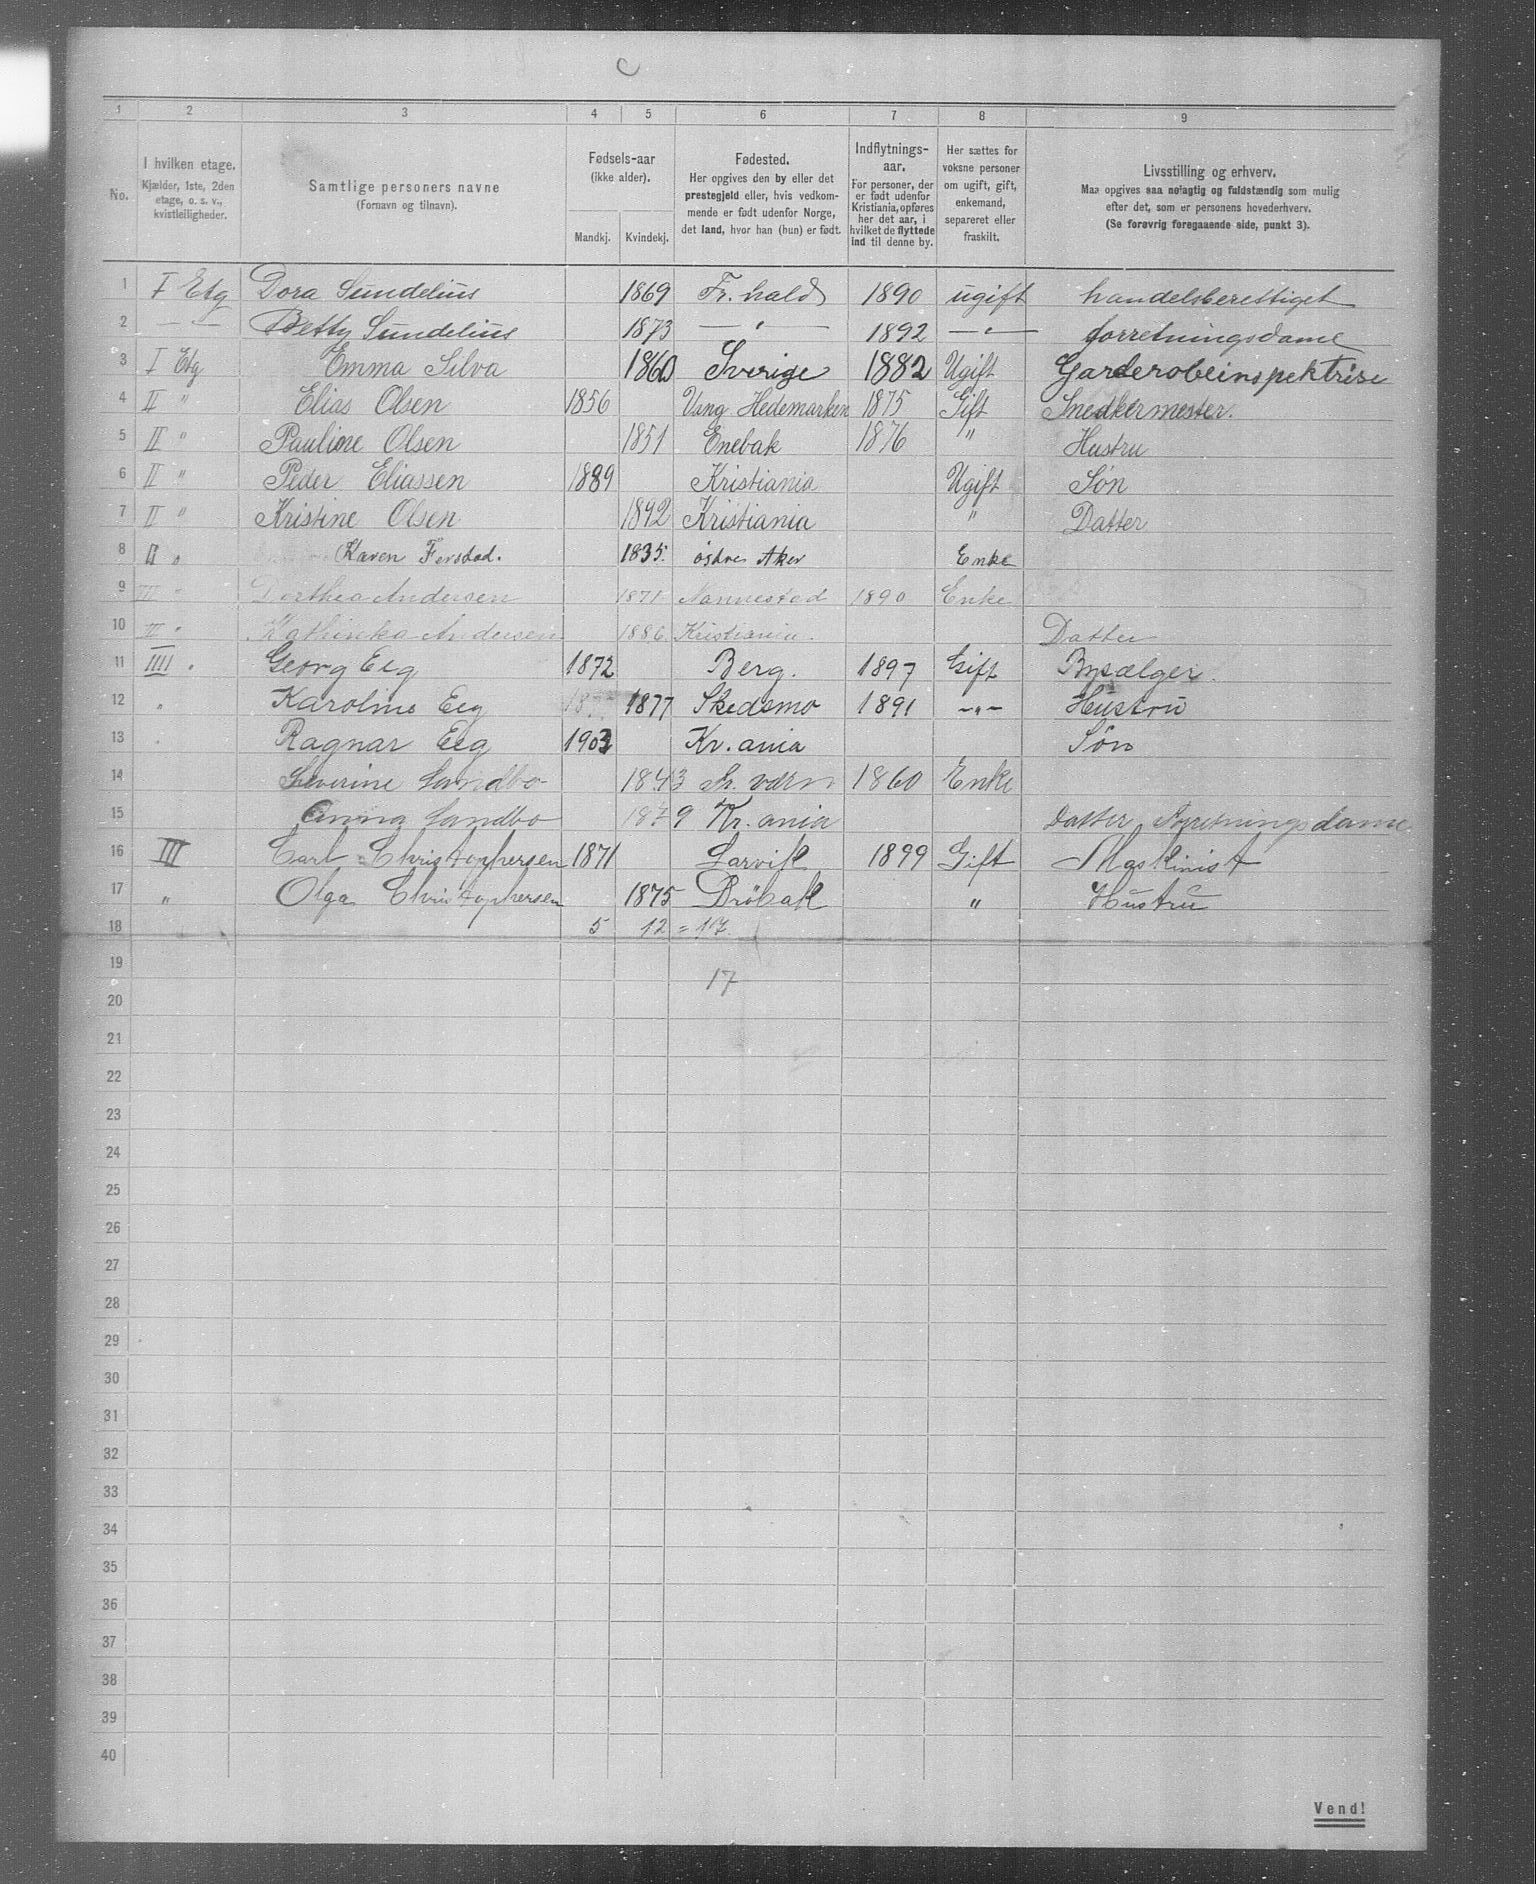 C
1 2 3 4 5 6 7 8 9
No.
I hvilken etage.
Kjælder, 1ste, 2den
etage, o. s. v.,
kvistleiligheder.
Samtlige personers navne
(Fornavn og tilnavn).
Fødsels-aar
(ikke alder).
Mandkj. Kvindekj.
Fødested.
Her opgives den by eller det
prestegjeld eller, hvis vedkom-
mende er født udenfor Norge,
det land, hvor han (hun) er født.
Indflytnings-
aar.
For personer, der
er født udenfor
Kristiania, opføres
her det aar, i
hvilket de flyttede
ind til denne by.
Her sættes for
voksne personer
om ugift, gift,
enkemand,
separeret eller
fraskilt.
Livsstilling og erhverv.
Maa opgives saa nøiagtig og fuldstændig som mulig
efter det, som er personens hovederhverv.
(Se forøvrig foregaaende side, punkt 3).
1 I Etg Dora Sundelius 1869 Fr. hald 1890 ugift handelsberettiget
2 — — Betty Sundelius 1873 — " — 1892 — " — forretningsdame
3 I Etg Emma Silva 1860 Sverige 1882 Ugift Garderobeinspektrise
4 II " Elias Olsen 1856 Vang Hedemarken 1875 Gift Snedkermester.
5 II " Pauline Olsen 1851 Enebak 1876 " Hustru
6 II " Peder Eliassen 1889 Kristiania Ugift Søn
7 II " Kristine Olsen 1892 Kristiania " Datter
8 II " Karen Ferstad. 1835. østre Aker Enke
9 III " Dorthea Andersen 1871 Nannestad 1890 Enke
10 III " Kathinka Andersen 1886 Kristiania. Datter
11 IIII " Georg Eeg 1872 Berg. 1897 Gift Bysælger.
12 " Karoline Eeg 1877 Skedsmo 1891 -"- Hustru
13 " Ragnar Eeg 1903 Kr. ania Søn
14 Severine Sandbo 1843 Fr. værn 1860 Enke
15 Anna Sandbo 1879 Kr. ania Datter Foretningsdame
16 III Carl Christophersen 1871 Larvik 1899 Gift Maskinist
17 " Olga Christophersen 1875 Drøbak " Hustru
18 5 12 = 17.
19 17
20
21
22
23
24
25
26
27
28
29
30
31
32
33
34
35
36
37
38
39
40
Vend!